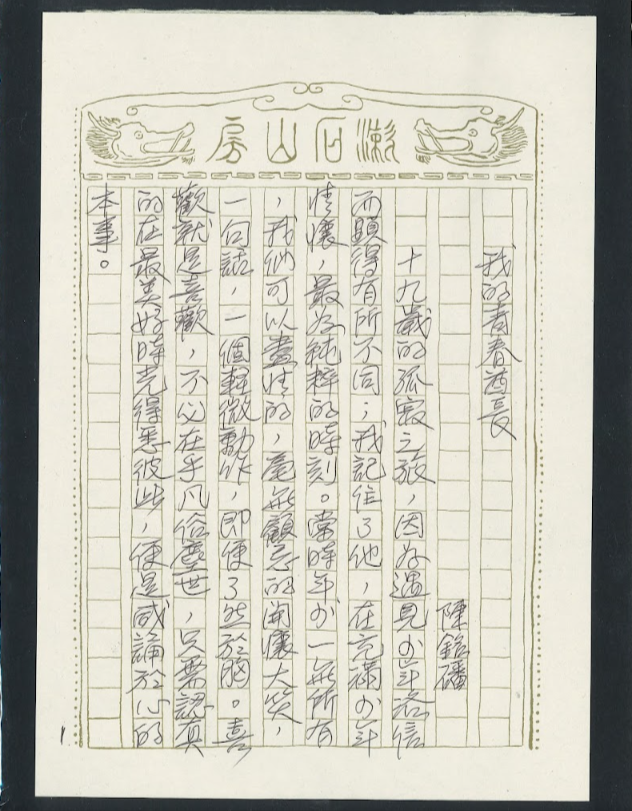 漱石山房
我的青春酋長
陳銘磻
十九歲的孤寂之旅，因為遇見少年為信
而顯得有所不同；我記住了他，在充滿少年
情懷，最為純粹的時刻。當時年少一無所有
，我們可以盡情的，毫無顧忌的開懷大笑，
一句話，一個輕微動作，即便了然於胸。喜
歡就是喜歡，不必在乎凡俗塵世，只需認真
的在最美好時光得悉彼此，便是感誦於心的
本事。
1